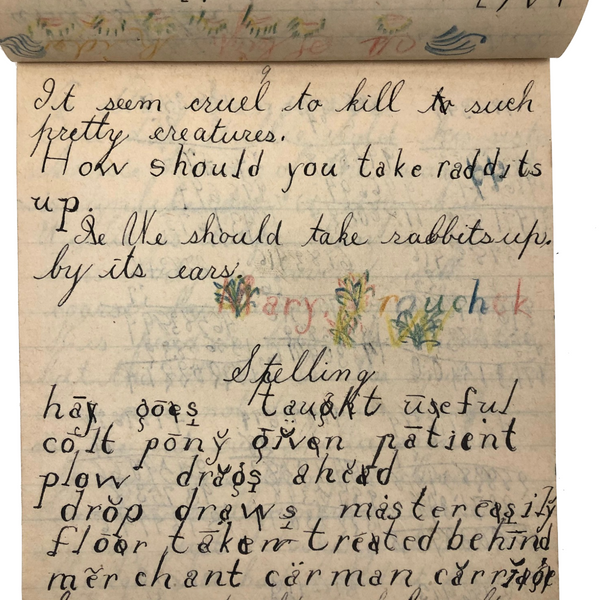 It seem cruel to kill such
pretty creatures.
How should you take raddits
up.
We should take rabbits up.
by its ears.
Mary
Spelling
hāy gōes̱ taught ūseful
cōlt pōny̆ gĭven pātient
plow drăgs̱ ahĕad
drŏp draws̱ măster ēas̱ily
flōor tāken trēated behīnd
mẽrchant cärman cărriage